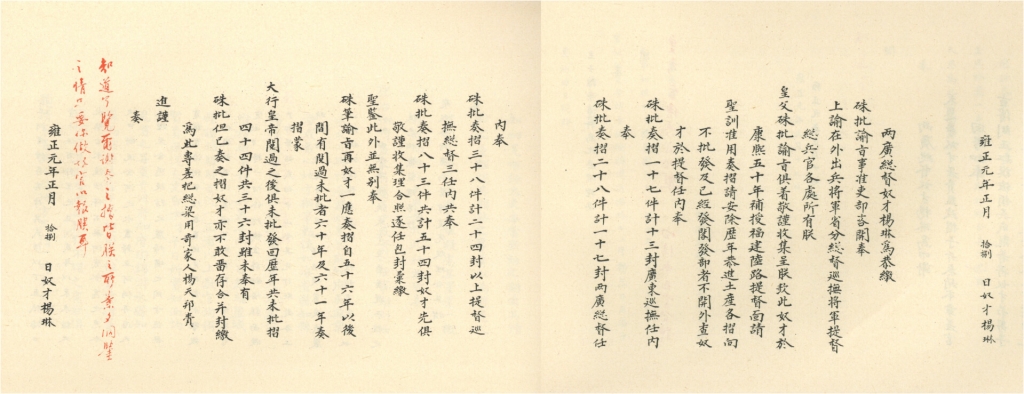 雍正元年正月 拾捌 日奴才楊琳
兩廣總督奴才楊琳爲恭繳
硃批諭旨事准吏部咨開奉
上諭在外出兵將軍省分總督巡撫將軍提督
總兵官各處所有朕
皇父硃批諭旨俱着敬謹收集呈朕欽此奴才於
康熙五十年補授福建陸路提督面請
聖訓准用奏摺請安除歷年恭進土産各摺向
不批發及已經發閣發部者不開外查奴
才於提督任內奉
硃批奏摺一十七件計十三封廣東巡撫任內
奉
硃批奏摺二十八件計一十七封兩廣總督任
內奉
硃批奏摺三十八件計二十四封以上提督巡
撫總督三任內共奉
硃批奏摺八十三件共計五十四封奴才先俱
敬謹收集理合照逐任包封彙繳
聖鑒此外並無別奉
硃筆諭旨再奴才一應奏摺自五十六年以後
間有閱過未批者六十年及六十一年奏
摺蒙
大行皇帝閱過之後俱未批發回歷年共未批摺
四十四件共三十六封雖未奉有
硃批但已奏之摺奴才亦不敢畱存合并封繳
爲此專差把總梁用哥家人楊天祁賫
進謹
奏
雍正元年正月 拾捌 日奴才楊琳
知道了覽爾謝恩之主摺皆朕之所意又洞鑒
之情只要你做好官以報朕耳